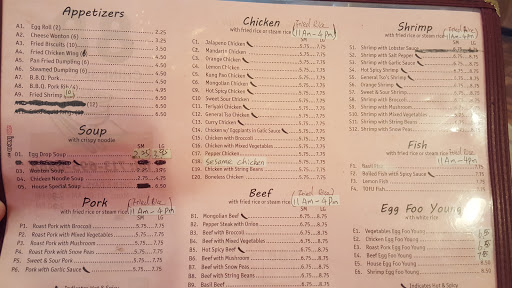 Appetizers
A1. Egg Roll (2) 2.25
A2. Cheese Wonton (6) 2.50
A3. Fried Biscuits (10) 2.50
A4. Fried Chicken Wing
A5. Pan Fried Dumpling (6)
A6. Steamed Dumpling (6)
A7. B.B.Q. Pork
A8. B.B.Q. Pork Rib 6.50
A9. Fried Shrimp 4.50
Soup
with crispy noodle
SM LG
Egg Drop Soup
D3. Wonton Soup 3.50
D4. Chicken Noodle Soup 3.75
D5. House Special Soup 6.50
Pork (Fried Rice)
with fried rice or steam rice 11 Am - 4 Pm
P1. Roast Pork with Broccoli 5.75 7.75
P2. Roast Pork with Mixed Vegetables 5.75 7.75
P3. Roast Pork with Mushroom 5.75 7.75
P4. Roast Pork with Snow Peas 5.75 7.75
P5. Sweet & Sour Pork 5.75 7.75
P6. Pork with Garlic Sauce 5.75 7.75
Chicken (Fried Rice)
with fried rice or steam rice 11 Am - 4 Pm
SM LG
C1. Jalapeno Chicken 5.75 7.75
C2. Mandarin Chicken 5.75 7.75
C3. Orange Chicken 5.75 7.75
C4. Lemon Chicken 5.75 7.75
C5. Kung Pao Chicken 5.75 7.75
C8. Mongolian Chicken 5.75 7.75
C9. Hot Spicy Chicken 5.75 7.75
C10. Sweet Sour Chicken 5.75 7.75
C11. Teriyaki Chicken 5.75 7.75
C12. General Tso Chicken 5.75 7.75
C13. Curry Chicken 5.75 7.75
C14. Chicken w/ Eggplants in Garlic Sauce 5.75 7.75
C15. Chicken with Broccoli 5.75 7.75
C16. Chicken with Mixed Vegetables 5.75 7.75
C17. Pepper Chicken 5.75 7.75
C18. Sesame Chicken 5.75 7.75
C19. Chicken with String Beans 5.75 7.75
C20. Boneless Chicken 5.75 7.75
Beef (Fried Rice)
with fried rice or steam rice 11 Am - 4 Pm
B1. Mongolian Beef 6.75 8.75
B2. Pepper Steak with Onion 6.75 8.75
B3. Beef with Broccoli 6.75 8.75
B4. Beef with Mixed Vegetables 6.75 8.75
B5. Hot Spicy Beef 6.75 8.75
B6. Beef with Mushroom 6.75 8.75
B7. Beef with Snow Peas 6.75 8.75
B8. Beef with String Beans 6.75 8.75
B9. Basil Beef 6.75 8.75
Shrimp (Fried Rice)
with fried rice or steam rice 11 Am - 4 Pm
SM LG
S1. Shrimp with Lobster Sauce
S2. Shrimp with Salt Pepper 6.75 8.75
S3. Shrimp with Garlic Sauce 6.75 8.75
S4. Hot Spicy Shrimp 6.75 8.75
S5. General Tso's Shrimp 6.75 8.75
S6. Orange Shrimp 6.75 8.75
S7. Sweet & Sour Shrimp 6.75 8.75
S8. Shrimp with Broccoli 6.75 8.75
S9. Shrimp with Mushroom 6.75 8.75
S10. Shrimp with Mixed Vegetables 6.75 8.75
S11. Shrimp with String Beans 6.75 8.75
S12. Shrimp with Snow Peas 6.75 8.75
Fish (Fried Rice)
with fried rice or steam rice 11 Am - 4 Pm
F2. Boiled Fish with Spicy Sauce
F3. Lemon Fish
F4. Tofu Fish
Egg Foo Young
with white rice
E1. Vegetables Egg Foo Young
E2. Chicken Egg Foo Young
E3. Roast Pork Egg Foo Young
E4. Beef Egg Foo Young
E5. House Egg Foo Young
E6. Shrimp Egg Foo Young
Indicates Hot & Spicy